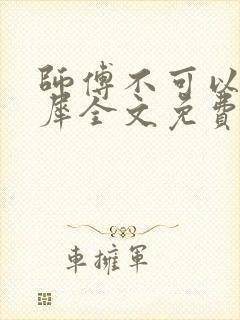 師傅不可以
犀全文免費
車擁軍